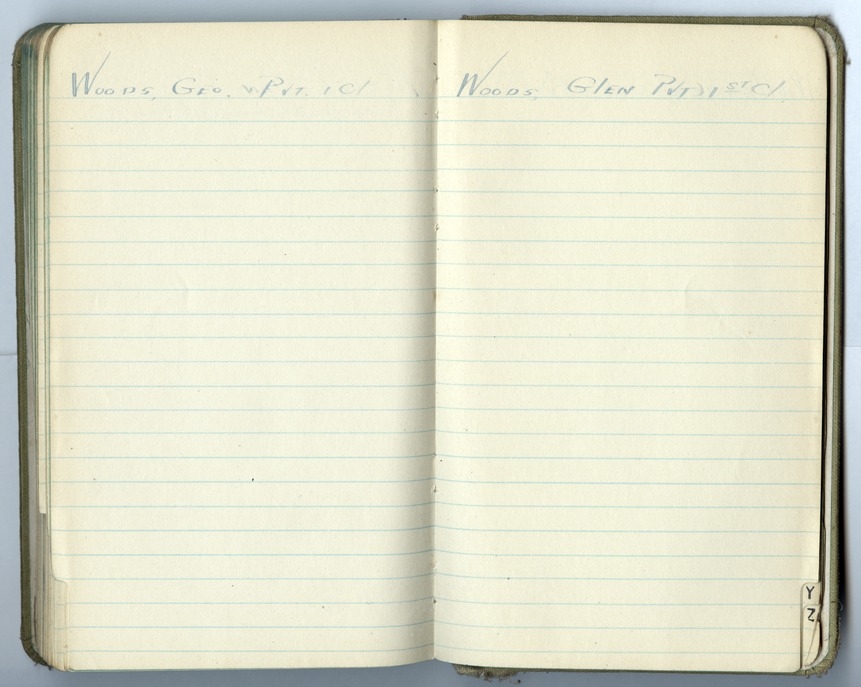 Woods, Geo. Pvt. 1 Cl
Woods, Glen Pvt 1st Cl
Y
Z